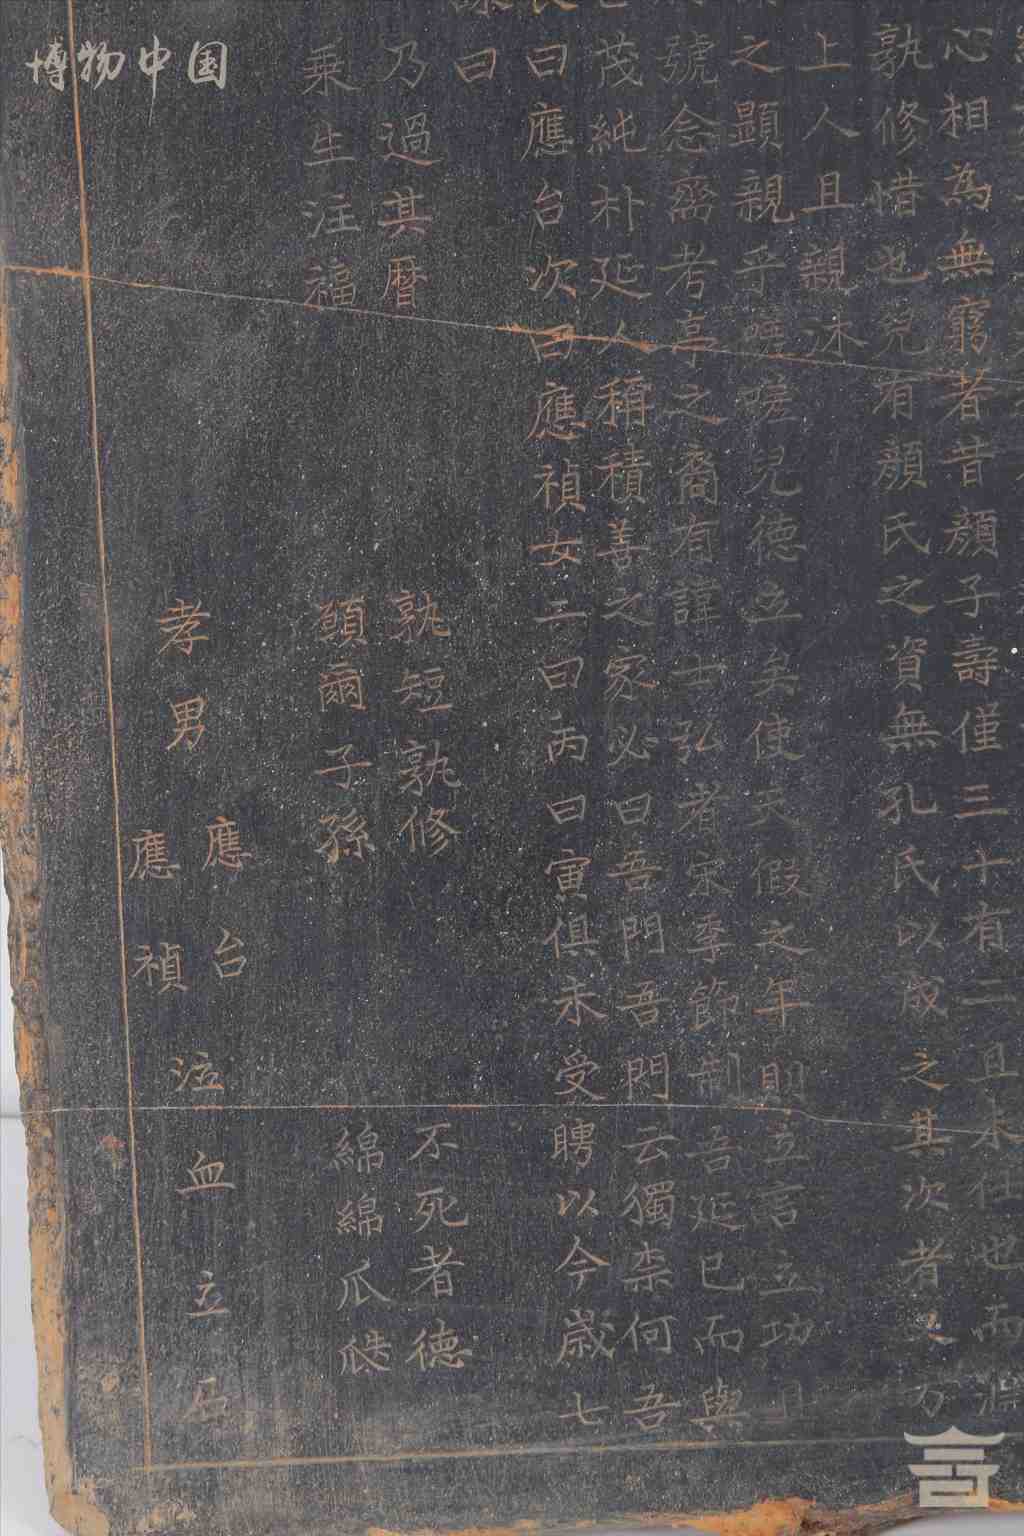 博物中国
心相為無窮者昔顏子壽僅三十有二且未仕也而淵
孰修惜也兒有顏氏之資無孔氏以成之其次者又乃
上人且親沐
之顯親乎嗟嗟兒德立矣使天假之年則立言立功且
號念齋考亭之裔有諱士弘者宋季節制吾延已而與
茂純朴延人稱積善之家必曰吾門吾門云獨柰何吾
曰應台次曰應禎女二曰丙曰寅俱未受聘以今歲七
曰
乃過其曆 孰短孰修 不死者德
乘生注福 頤爾子孫 綿綿瓜瓞
孝男 應台 應禎 泣血立石